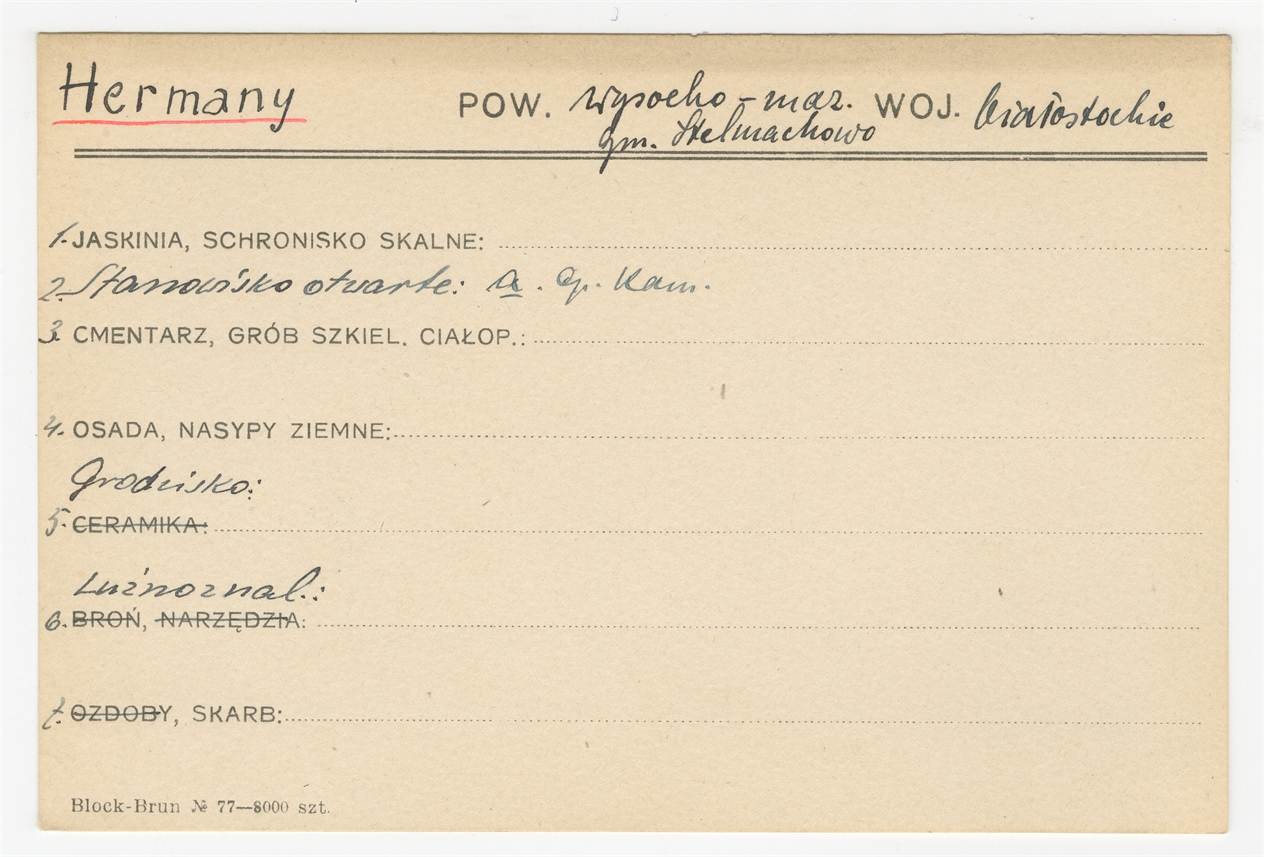 Hermany POW. Wysocko-maz. WOJ. białostockie
gm. Stelmachowo
1. JASKINIA, SCHRONISKO SKALNE:
2. Stanowisko otwarte: a. Ep. Kam.
3. CMENTARZ, GRÓB SZKIEL. CIAŁOP.:
4. OSADA, NASYPY ZIEMNE:
Grodzisko:
5. CERAMIKA:
Luźno znal.:
6. BROŃ, NARZĘDZIA:
7. OZDOBY, SKARB:
Block-Brun № 77—8000 szt.